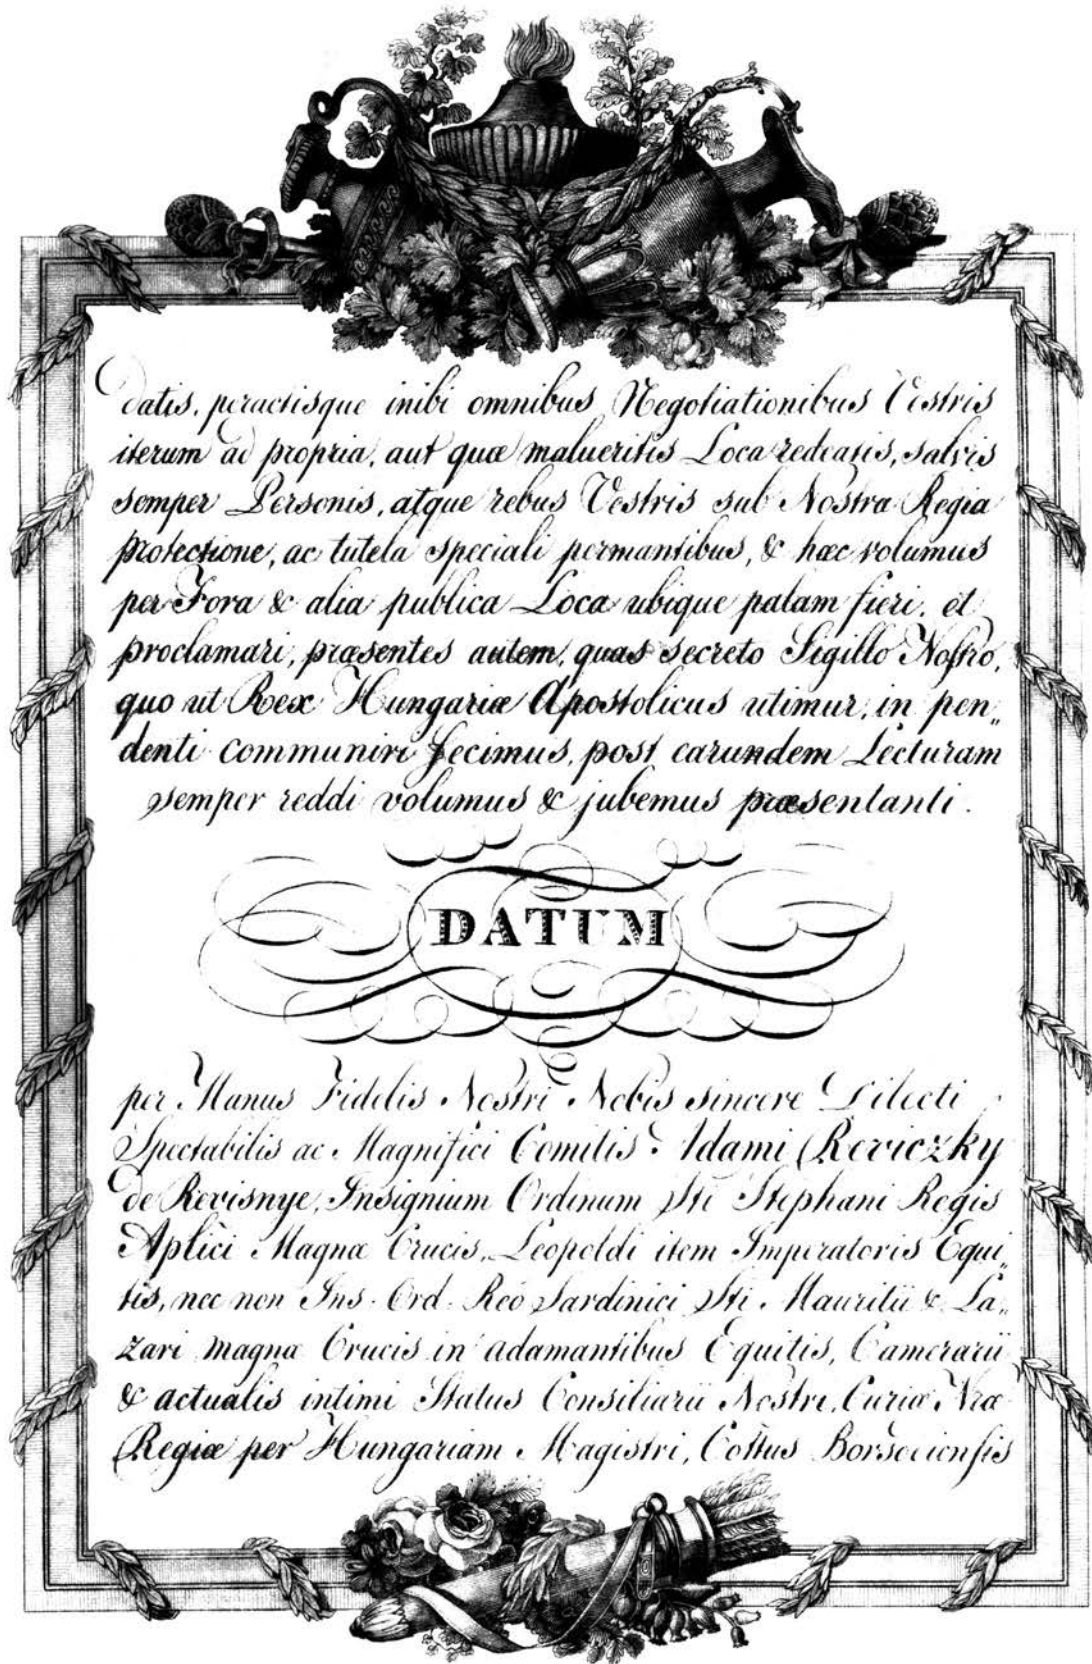 datis, peractisque inibi omnibus Negotiationibus Vestris
iterum ad propria, aut quæ malueritis Loca redeatis, salvis
semper Personis, atque rebus Vestris sub Nostra Regia
protectione, ac tutela speciali permantibus, & hæc volumus
per Fora & alia publica Loca ubique palam fieri, et
proclamari, præsentes autem, quas secreto Sigillo Nostro,
quo ut Rex Hungariæ Apostolicus utimur, in pen„
denti communiri fecimus, post earundem Lecturam
semper reddi volumus & jubemus præsentanti.
DATUM
per Manus Fidelis Nostri Nobis sincere Dilecti
Spectabilis ac Magnifici Comitis Adami Reviczky
de Revisnye, Insignium Ordinum Sti Stephani Regis
Aplici Magnæ Crucis, Leopoldi item Imperatoris Equi„
tis, nec non Ins. Ord. Reo Sardinici Sti Mauritii & La„
zari magnæ Crucis in adamantibus Equitis, Camerarii
& actualis intimi Status Consiliarii Nostri, Curiæ Nræ
Regiæ per Hungariam Magistri, Cottus Borsodiensis